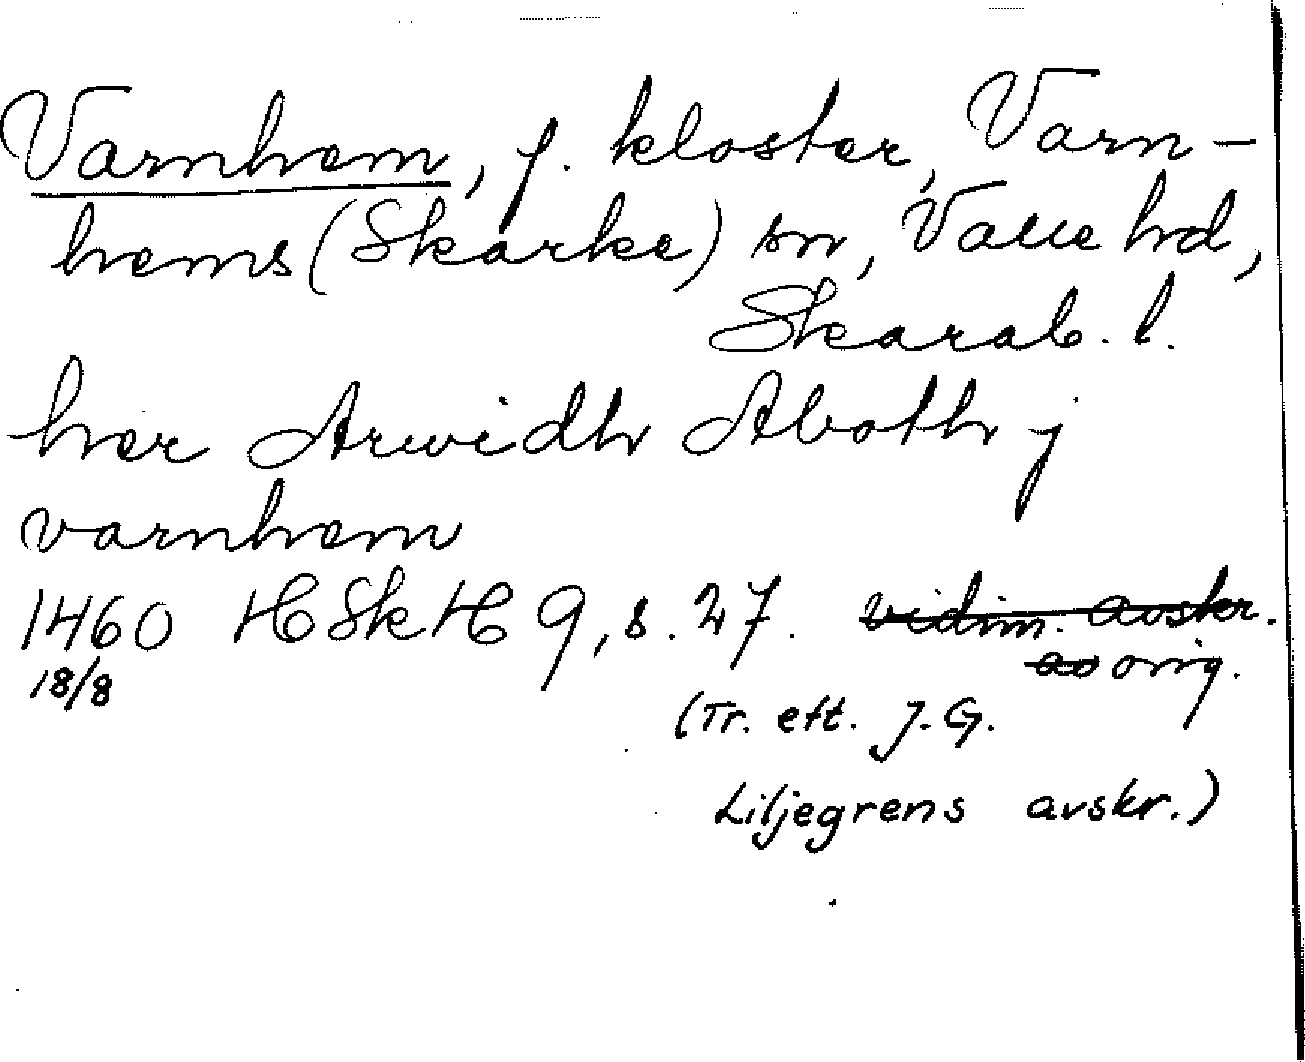 Varnhem, f. kloster, Varn-
hems (Skarke) sn, Valle hd,
Skarab. l.
her Arwidh Aboth j
varnhem
1460 HSkH 9, s. 27. vidim. avskr.
18/8 av orig.
(Tr. eft. J. G.
Liljegrens avskr.)